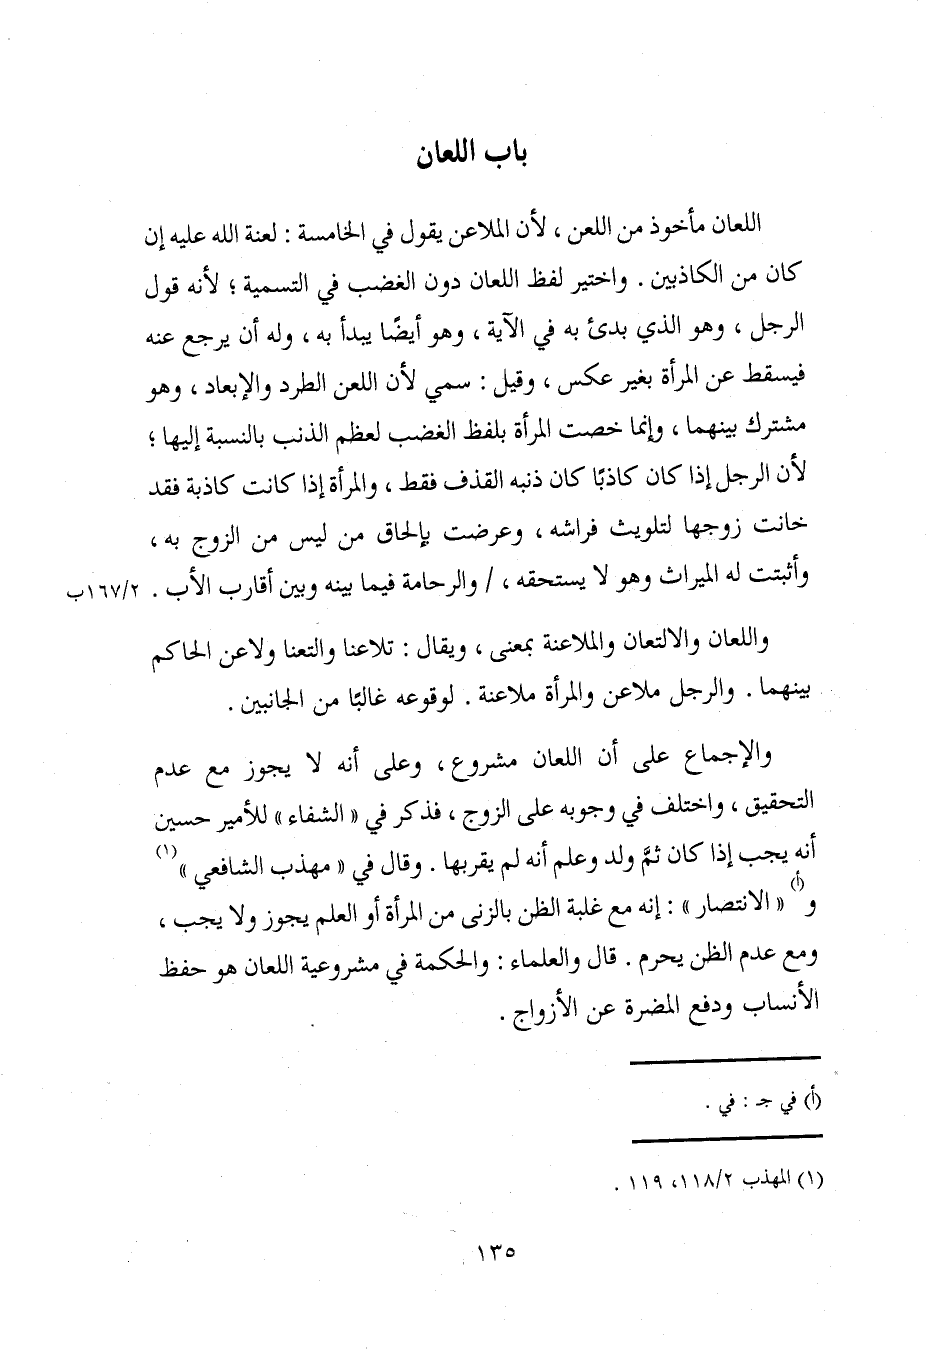 باب اللعان
اللعان مأخوذ من اللعن ، لأن الملاعن يقول في الخامسة : لعنة الله عليه إن
كان من الكاذبين . واختير لفظ اللعان دون الغضب في التسمية ؛ لأنه قول
الرجل ، وهو الذي بدئ به في الآية ، وهو أيضًا يبدأ به ، وله أن يرجع عنه
فيسقط عن المرأة بغير عكس ، وقيل : سمي لأن اللعن الطرد والإبعاد ، وهو
مشترك بينهما ، وإنما خصت المرأة بلفظ الغضب لعظم الذنب بالنسبة إليها ؛
لأن الرجل إذا كان كاذبًا كان ذنبه القذف فقط ، والمرأة إذا كانت كاذبة فقد
خانت زوجها لتلويث فراشه ، وعرضت بإلحاق من ليس من الزوج به ،
وأثبتت له الميراث وهو لا يستحقه ، / والرحامة فيما بينه وبين أقارب الأب . ١٦٧/٢ب
واللعان والالتعان والملاعنة بمعنى ، ويقال : تلاعنا والتعنا ولاعن الحاكم
بينهما . والرجل ملاعن والمرأة ملاعنة . لوقوعه غالبًا من الجانبين .
والإجماع على أن اللعان مشروع ، وعلى أنه لا يجوز مع عدم
التحقيق ، واختلف في وجوبه على الزوج ، فذكر في « الشفاء » للأمير حسين
أنه يجب إذا كان ثمَّ ولد وعلم أنه لم يقربها . وقال في « مهذب الشافعي »(١)
و(أ) « الانتصار » : إنه مع غلبة الظن بالزنى من المرأة أو العلم يجوز ولا يجب ،
ومع عدم الظن يحرم . قال والعلماء : والحكمة في مشروعية اللعان هو حفظ
الأنساب ودفع المضرة عن الأزواج .
(أ) في جـ : في .
(١) المهذب ١١٨/٢، ١١٩ .
١٣٥